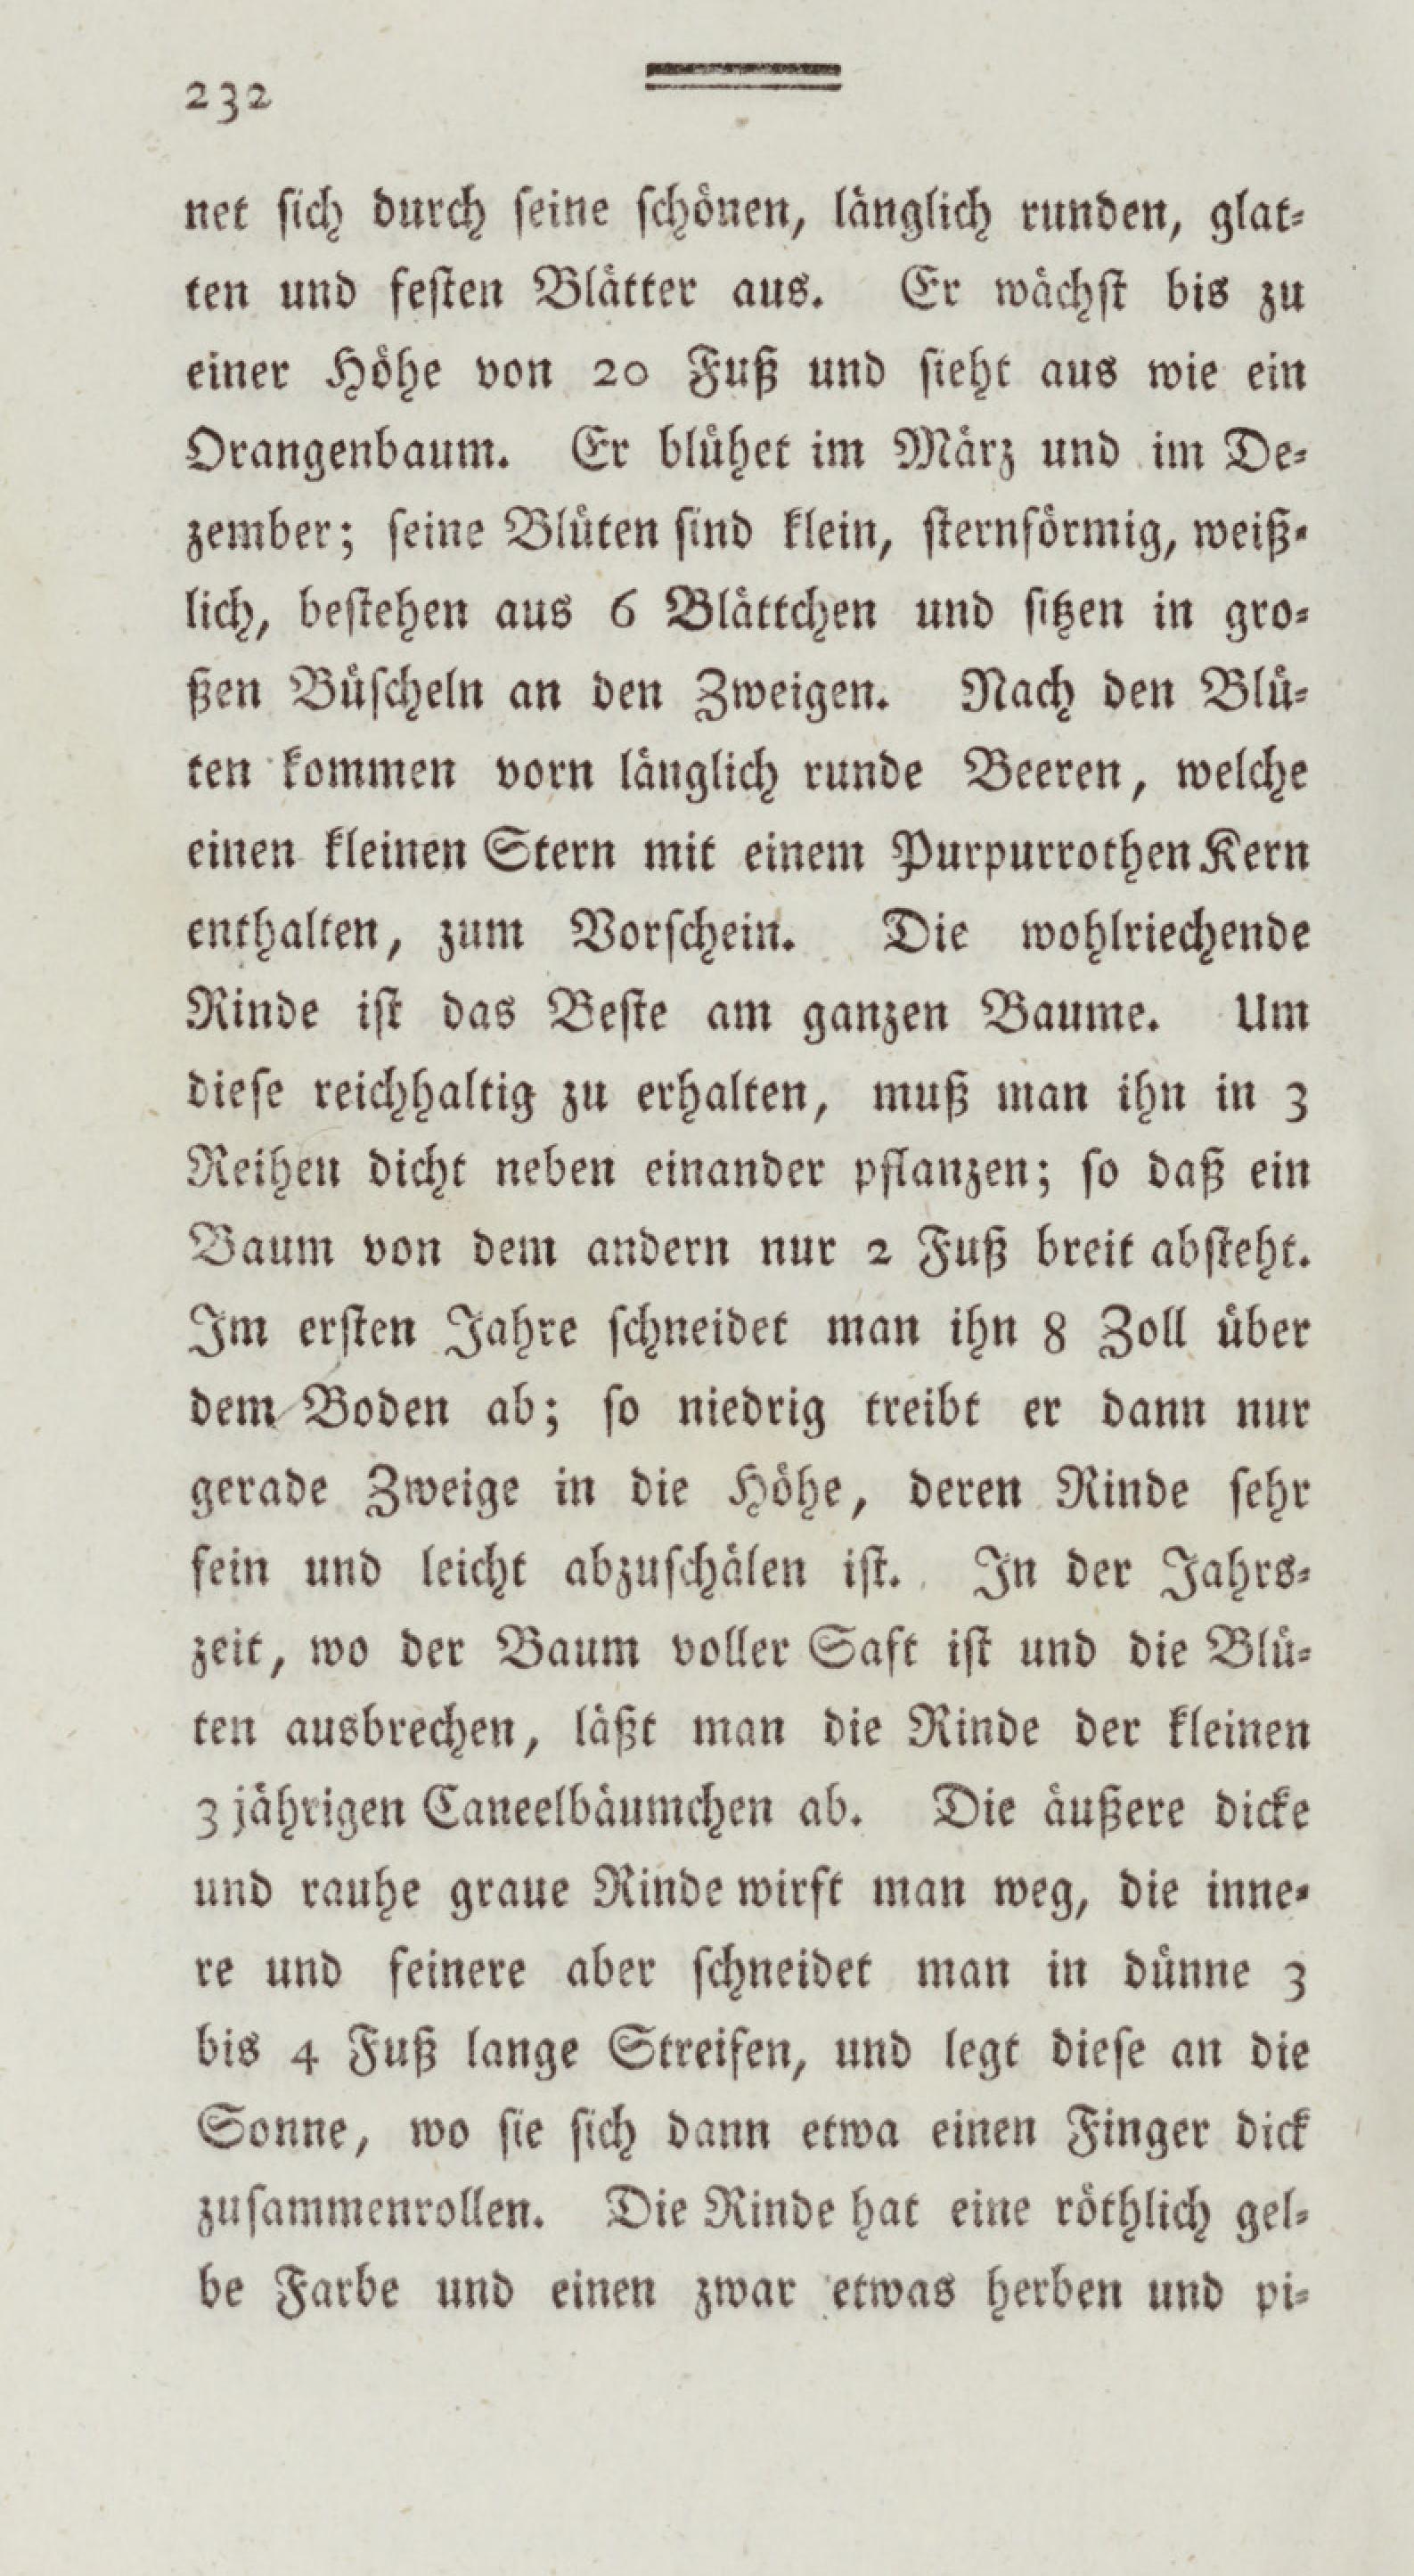 232
net sich durch seine schönen, länglich runden, glat-
ten und festen Blätter aus. Er wächst bis zu
einer Höhe von 20 Fuß und sieht aus wie ein
Orangenbaum. Er blühet im März und im De-
zember; seine Blüten sind klein, sternförmig, weiß-
lich, bestehen aus 6 Blättchen und sitzen in gro-
ßen Büscheln an den Zweigen. Nach den Blü-
ten kommen vorn länglich runde Beeren, welche
einen kleinen Stern mit einem Purpurrothen Kern
enthalten, zum Vorschein. Die wohlriechende
Rinde ist das Beste am ganzen Baume. Um
diese reichhaltig zu erhalten, muß man ihn in 3
Reihen dicht neben einander pflanzen; so daß ein
Baum von dem andern nur 2 Fuß breit absteht.
Im ersten Jahre schneidet man ihn 8 Zoll über
dem Boden ab; so niedrig treibt er dann nur
gerade Zweige in die Höhe, deren Rinde sehr
fein und leicht abzuschälen ist. In der Jahrs-
zeit, wo der Baum voller Saft ist und die Blü-
ten ausbrechen, läßt man die Rinde der kleinen
3 jährigen Caneelbäumchen ab. Die äußere dicke
und rauhe graue Rinde wirft man weg, die inne-
re und feinere aber schneidet man in dünne 3
bis 4 Fuß lange Streifen, und legt diese an die
Sonne, wo sie sich dann etwa einen Finger dick
zusammenrollen. Die Rinde hat eine röthlich gel-
be Farbe und einen zwar etwas herben und pi-